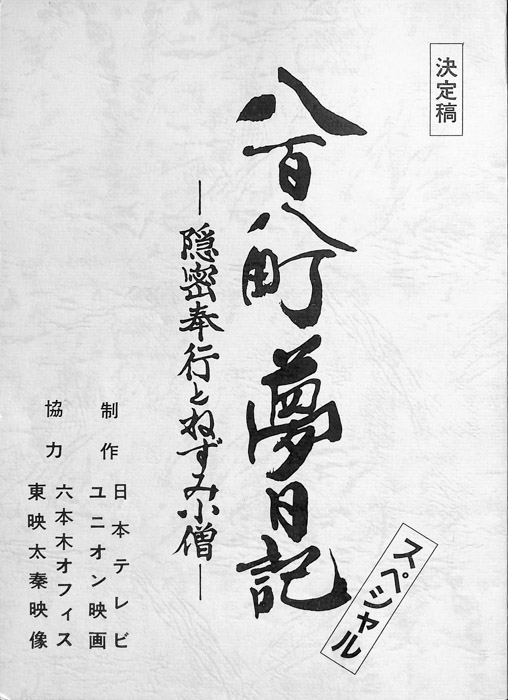 決定稿
八百八町夢日記
―隠密奉行とねずみ小僧―
スペシャル
制作 日本テレビ
ユニオン映画
協力 六本木オフィス
東映太秦映像